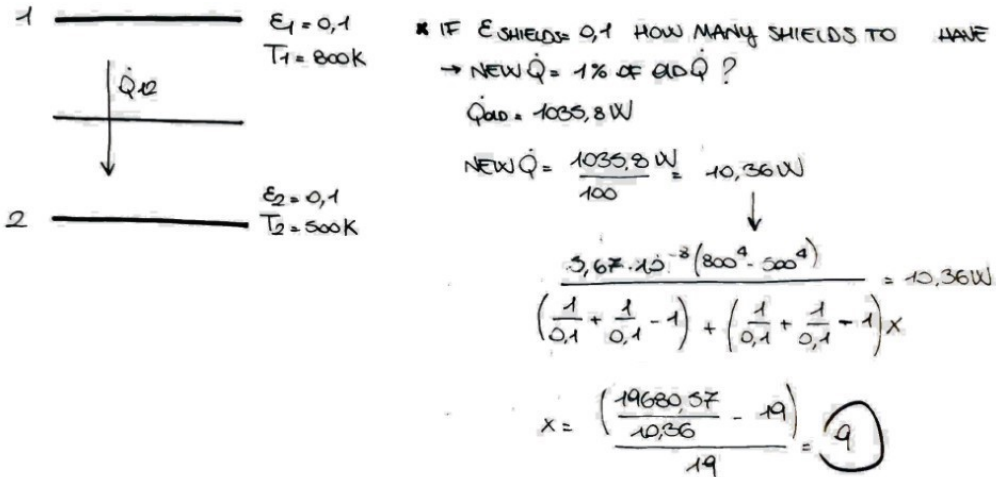 1
ε1 = 0,1
T1 = 800K
Q̇12
2
ε2 = 0,1
T2 = 500K
* IF ε SHIELDS = 0,1 HOW MANY SHIELDS TO HAVE
→ NEW Q̇ = 1% OF OLD Q̇ ?
Q̇OLD = 1035,8 W
NEW Q̇ = 1035,8 W / 100 = 10,36 W
5,67·10⁻⁸ (800⁴ - 500⁴) / ((1/0,1 + 1/0,1 - 1) + (1/0,1 + 1/0,1 - 1)x) = 10,36 W
x = (19680,57 / 10,36 - 19) / 19 = 9